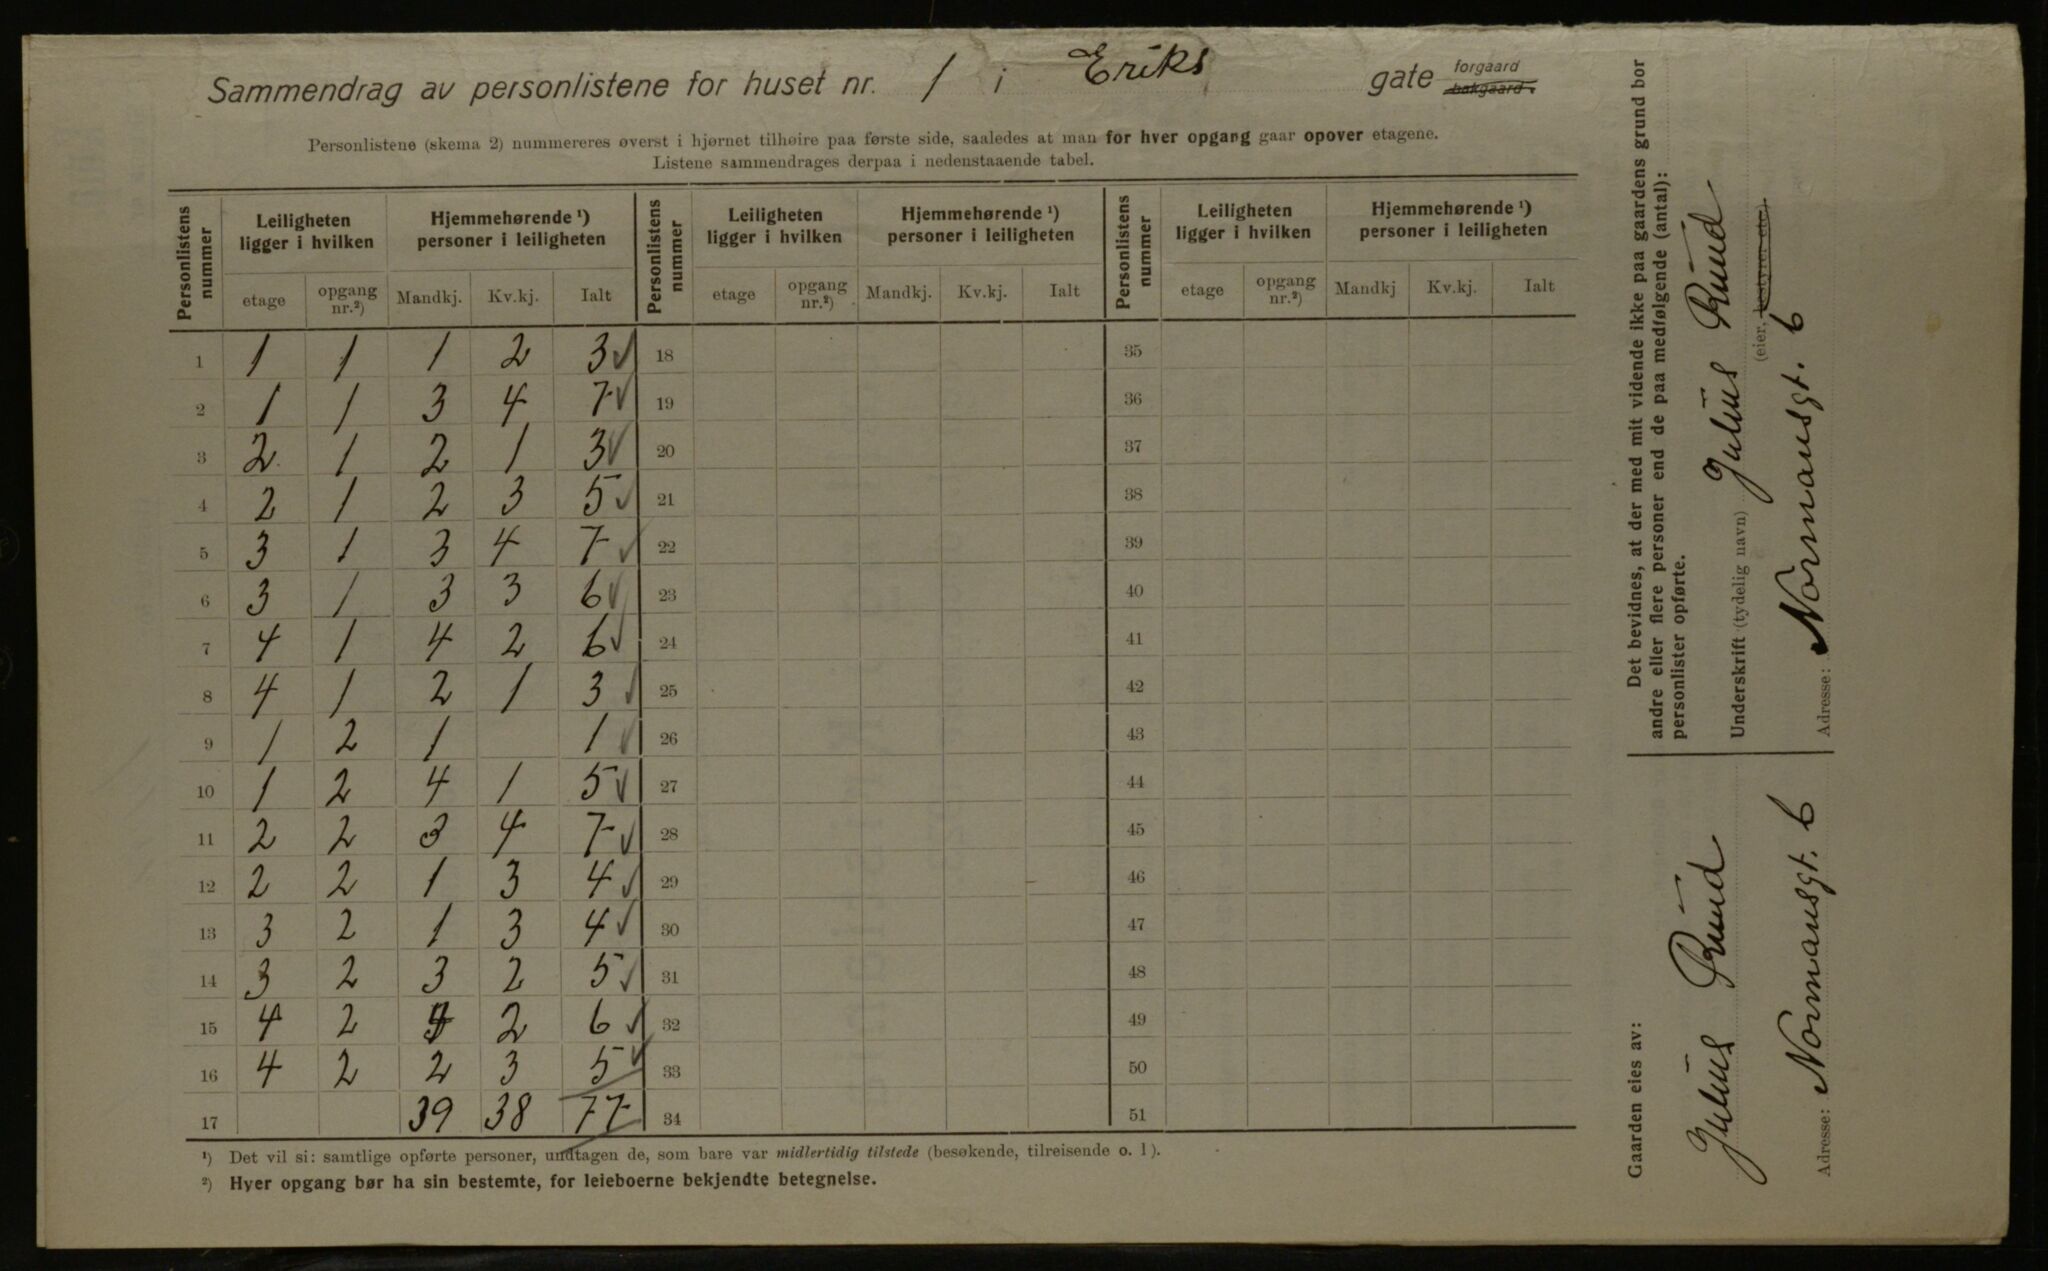 Sammendrag av personlistene for huset nr. 1 i Eriks gate forgaard bakgaard.
Personlistene (skema 2) nummereres øverst i hjørnet tilhøire paa første side, saaledes at man for hver opgang gaar opover etagene.
Listene sammendrages derpaa i nedenstaaende tabel.
Personlistens nummer Leiligheten ligger i hvilken Hjemmehørende ¹) personer i leiligheten Personlistens nummer Leiligheten ligger i hvilken Hjemmehørende ¹) personer i leiligheten Personlistens nummer Leiligheten ligger i hvilken Hjemmehørende ¹) personer i leiligheten
etage opgang nr.²) Mandkj. Kv.kj. Ialt etage opgang nr.²) Mandkj. Kv.kj. Ialt etage opgang nr.²) Mandkj Kv.kj. Ialt
1 1 1 1 2 3 ✓ 18 35
2 1 1 3 4 7 ✓ 19 36
3 2 1 2 1 3 ✓ 20 37
4 2 1 2 3 5 ✓ 21 38
5 3 1 3 4 7 ✓ 22 39
6 3 1 3 3 6 ✓ 23 40
7 4 1 4 2 6 ✓ 24 41
8 4 1 2 1 3 ✓ 25 42
9 1 2 1 1 ✓ 26 43
10 1 2 4 1 5 ✓ 27 44
11 2 2 3 4 7 ✓ 28 45
12 2 2 1 3 4 ✓ 29 46
13 3 2 1 3 4 ✓ 30 47
14 3 2 3 2 5 ✓ 31 48
15 4 2 4 2 6 ✓ 32 49
16 4 2 2 3 5 ✓ 33 50
17 39 38 77 34 51
¹) Det vil si: samtlige opførte personer, undtagen de, som bare var midlertidig tilstede (besøkende, tilreisende o. l).
²) Hver opgang bør ha sin bestemte, for leieboerne bekjendte betegnelse.
Det bevidnes, at der med mit vidende ikke paa gaardens grund bor
andre eller flere personer end de paa medfølgende (antal):
personlister opførte.
Underskrift (tydelig navn) Julius Ruud
(eier, bestyrer etc.)
Adresse: Normansgt. 6
Gaarden eies av:
Julius Ruud
Adresse: Normansgt. 6